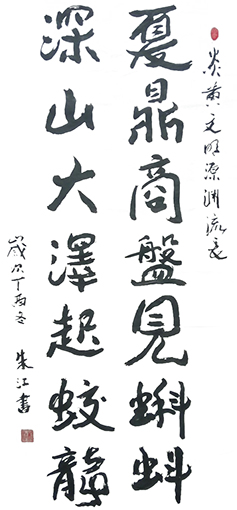 炎黄文明源渊流长
夏鼎商盤見蝌蚪
深山大澤起蛟龍
歲次丁酉冬 朱江書